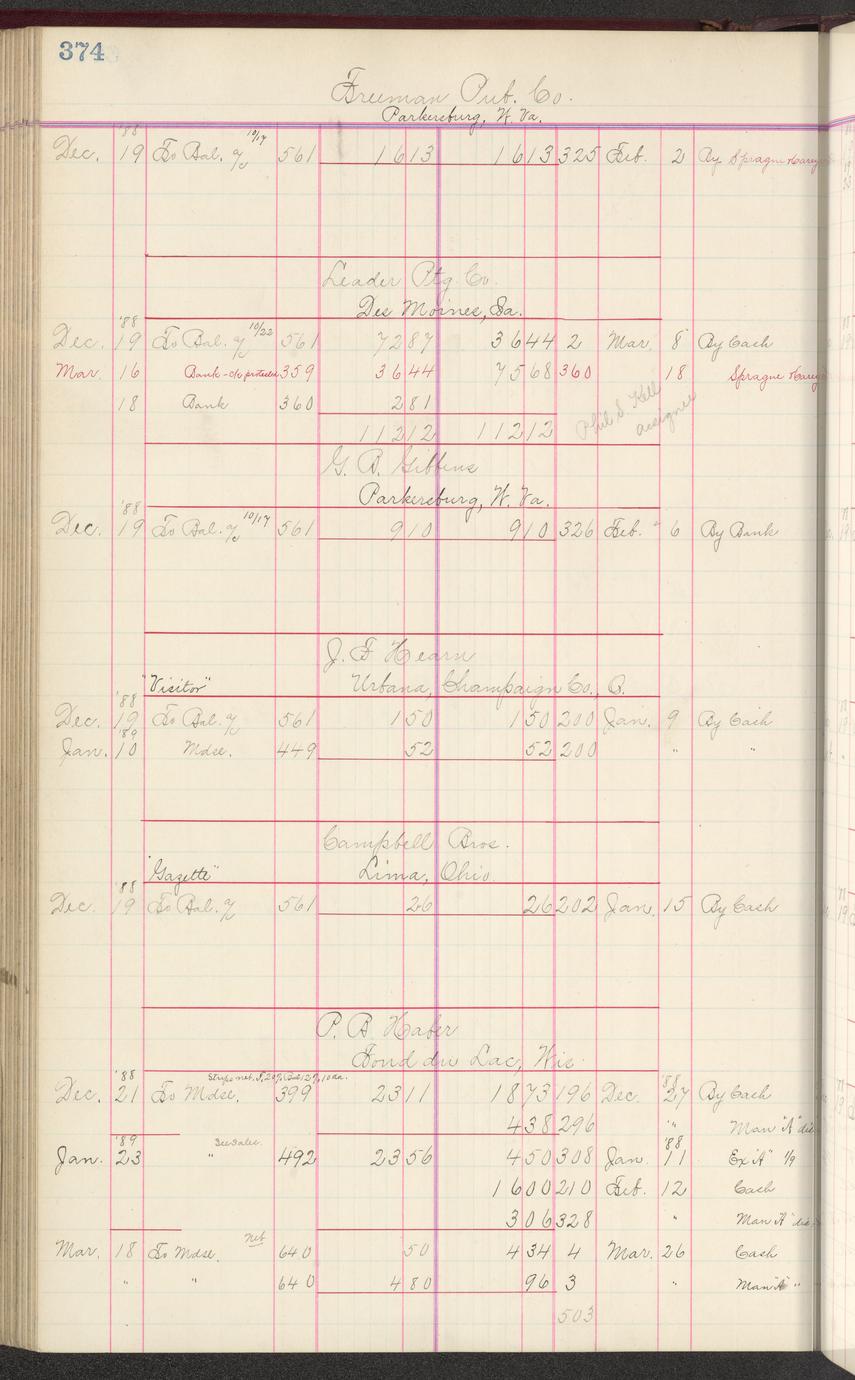 374
Freeman Pub. Co.
Parkersburg, W. Va.
'88
Dec. 19 To Bal. a/c 10/17 561 1613 1613 325 Feb. 2 By Sprague
Leader Ptg. Co.
Des Moines, Ia.
'88
Dec. 19 To Bal. a/c 10/22 561 7287 3644 2 Mar. 8 By Cash
Mar. 16 Bank - c/o protested 359 3644 7568 360 18 Sprague
18 Bank 360 281
11212 11212
Phil S. Kell
assignee
G. B. Gibbens
Parkersburg, W. Va.
'88
Dec. 19 To Bal. a/c 10/17 561 910 910 326 Feb. 6 By Bank
J. F. Hearn
"Visitor" Urbana, Champaign Co., O.
'88
Dec. 19 To Bal. a/c 561 150 150 200 Jan. 9 By Cash
'89
Jan. 10 Mdse. 449 52 52 200 " "
Campbell Bros.
"Gazette" Lima, Ohio
'88
Dec. 19 To Bal. a/c 561 26 26 202 Jan. 15 By Cash
P. B. Haber
Fond du Lac, Wis.
'88 '88
Dec. 21 To Mdse. 399 2311 1873 196 Dec. 27 By Cash
438 296 " Man "A" dis
'89 '88
Jan. 23 " 492 2356 450 308 Jan. 11 Ex "A" 1/9
1600 210 Feb. 12 Cash
306 328 " Man "A" dis
Mar. 18 To Mdse. Net 640 50 434 4 Mar. 26 Cash
" " 640 480 96 3 " Man "A" "
503